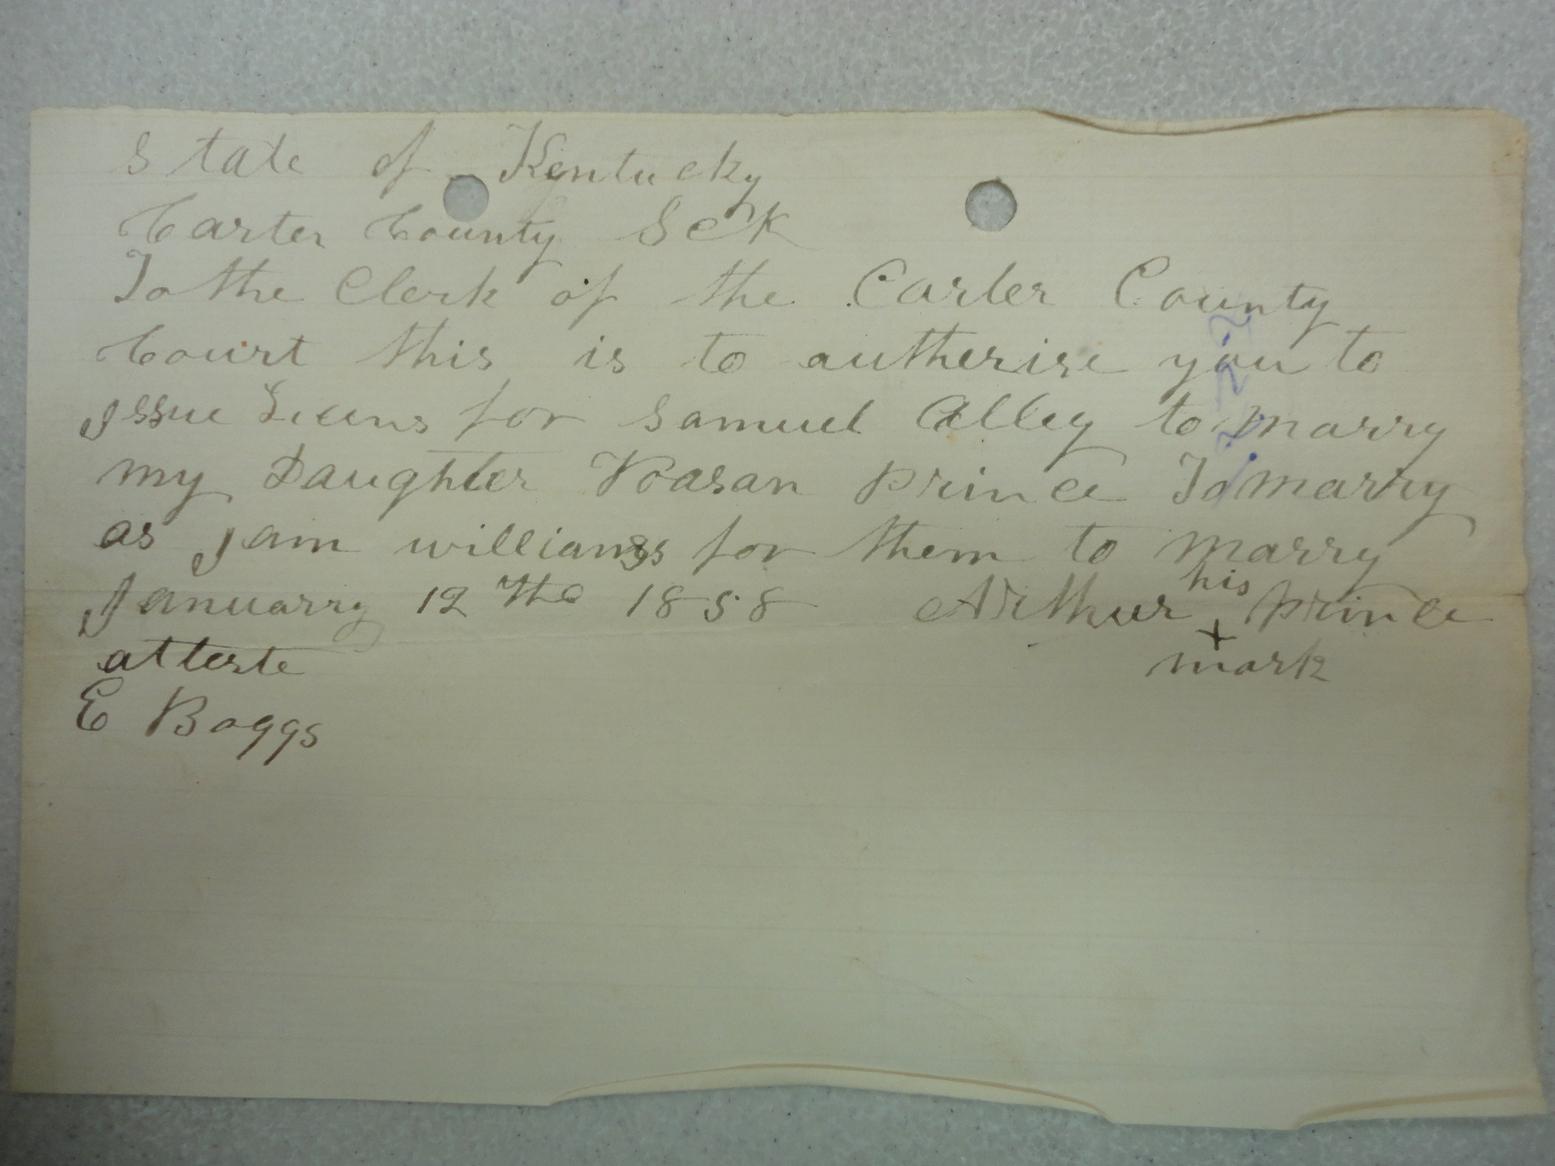 State of Kentucky
Carter County Sck
To the Clerk of the Carter County
Court this is to autherise you to
Issue Licens for Samuel Alley to marry
my Daughter Roasan prince To marry
as I am willianss for them to marry
Januarry 12 the 1858 Arthur his prince
+
atteste mark
E Boggs